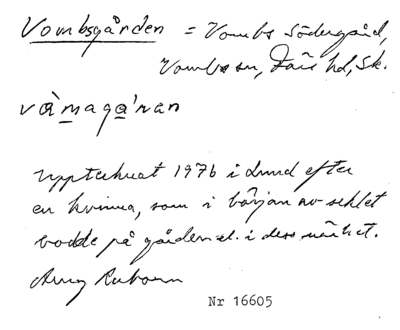 Vombsgården = Vombs Södergård,
Vombs sn, Färs hd, Sk.
vàmagá'ran
Upptecknat 1976 i Lund efter
en kvinna, som i början av seklet
bodde på gården el. i dess närhet.
Nr 16605